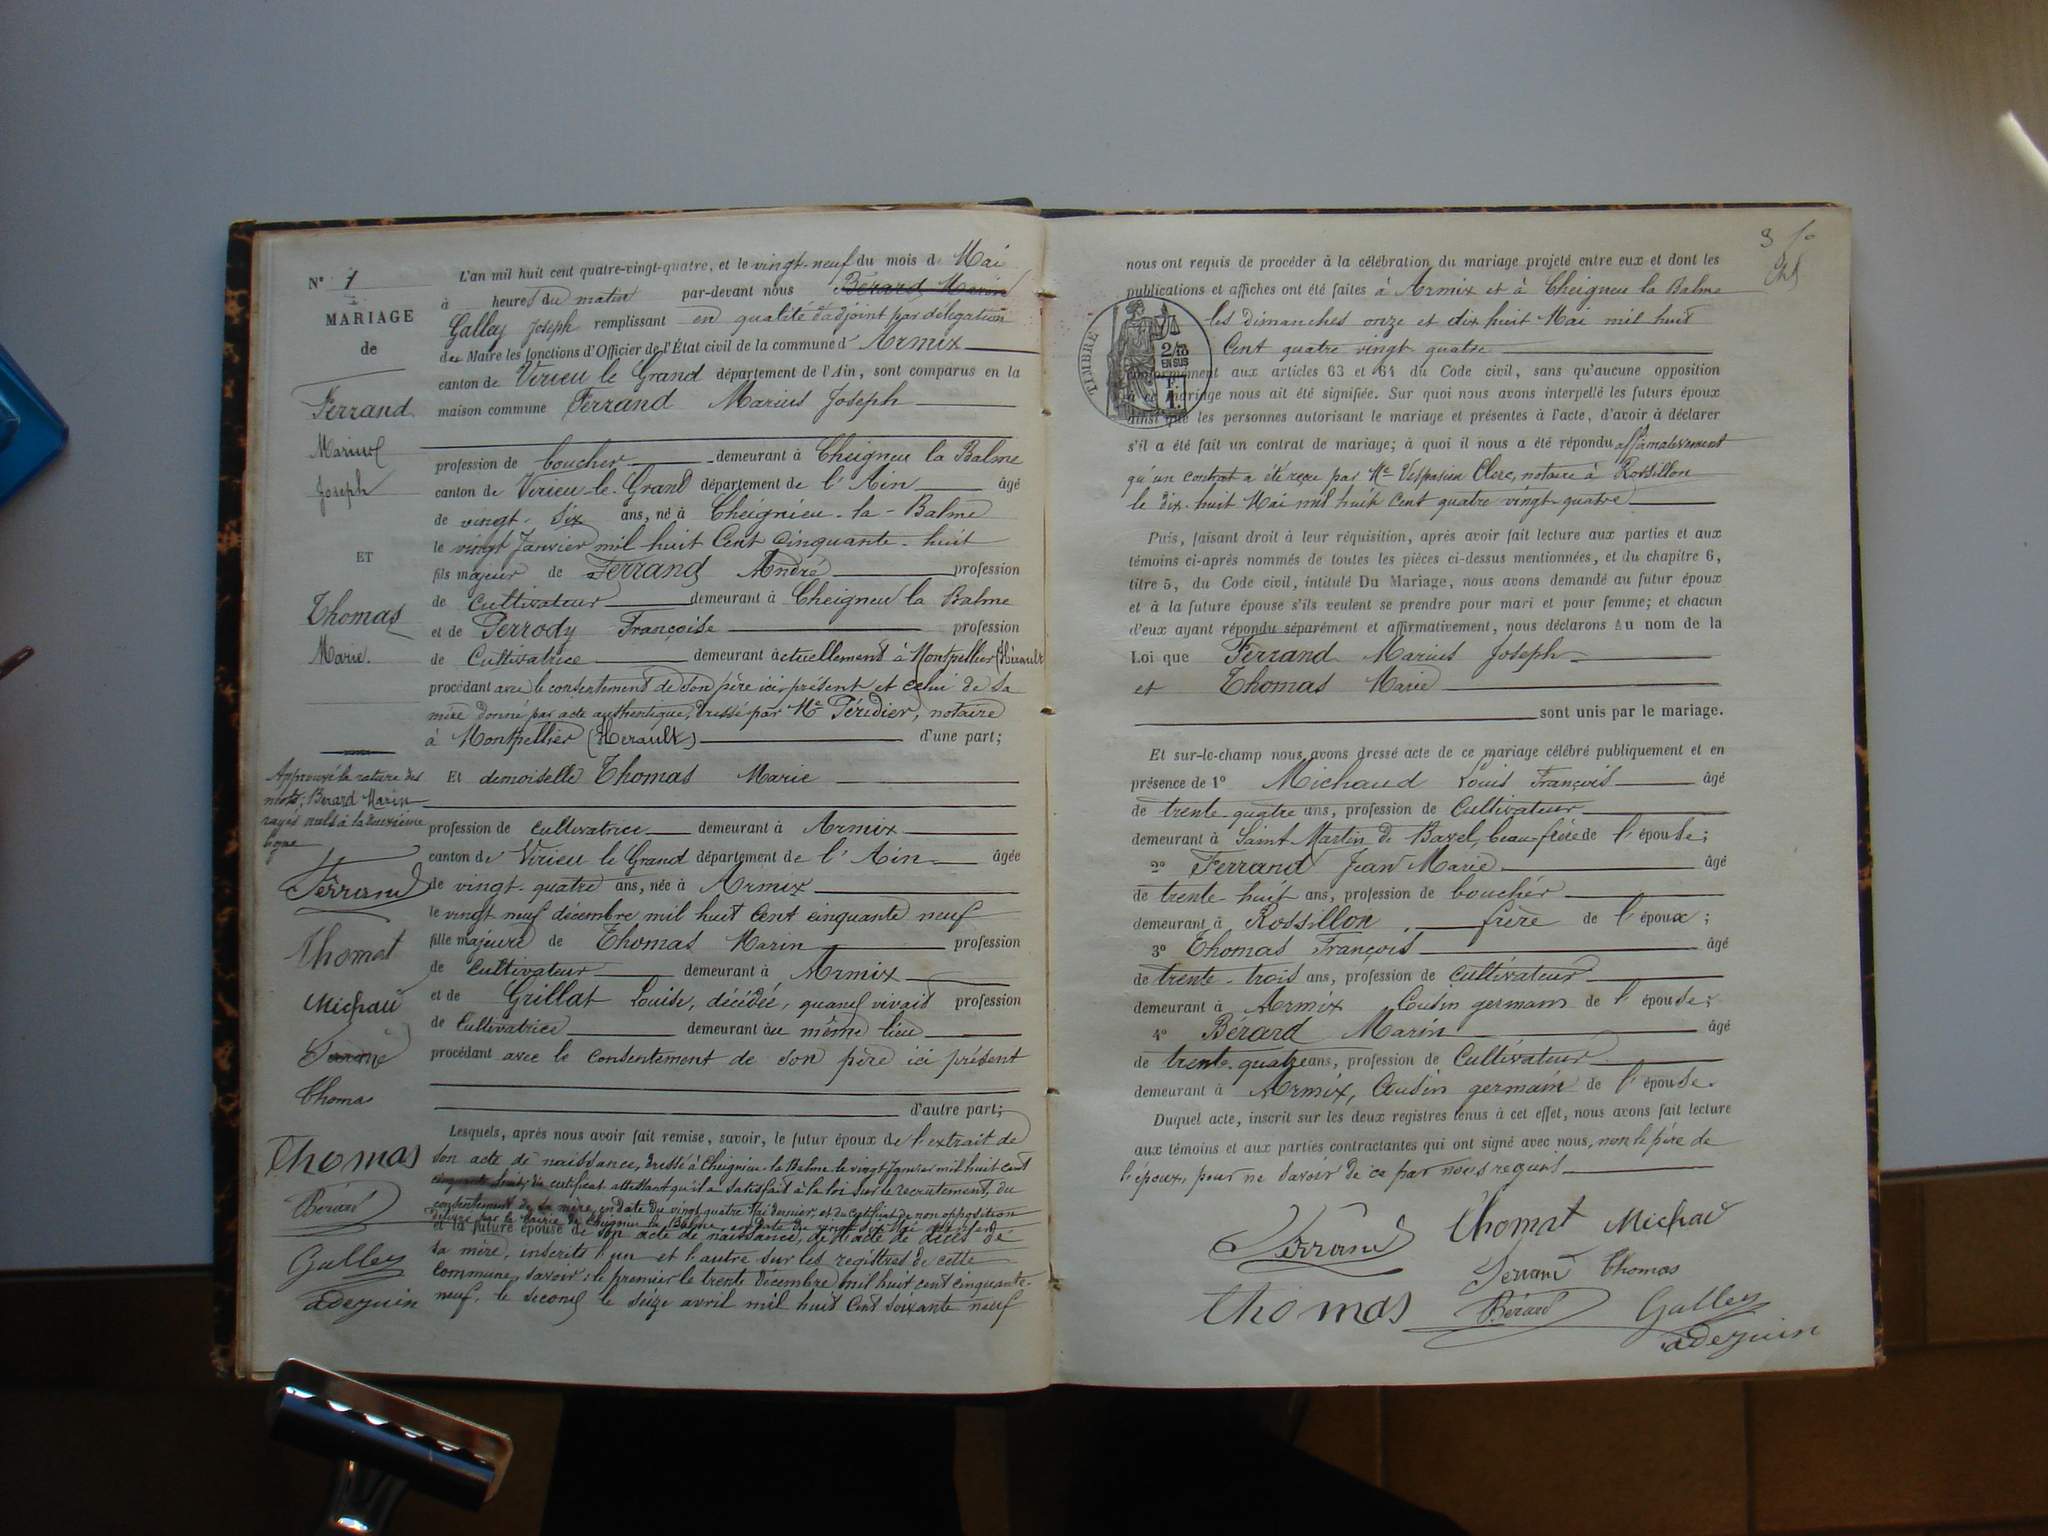 N° 1
MARIAGE
de
Ferrand
Marius
Joseph
ET
Thomas
Marie.
Approuvé la rature des
mots; Bérard Marin
rayés nuls à la deuxième
ligne
Ferrand
Thomat
Michau
Thoma
Thomas
Bérard
Galley
adejuin
L'an mil huit cent quatre-vingt-quatre, et le vingt-neuf du mois d Mai
à heures du matin par-devant nous Bérard Marin
Galley Joseph remplissant en qualité d'adjoint par délégation
du Maire les fonctions d'Officier de l'État civil de la commune d' Armix
canton de Virieu le Grand département de l'Ain, sont comparus en la
maison commune Ferrand Marius Joseph
profession de boucher demeurant à Cheigneu la Balme
canton de Virieu-le-Grand département de l'Ain âgé
de vingt-six ans, né à Cheignieu-la-Balme
le vingt Janvier mil huit Cent Cinquante-huit
fils majeur de Ferrand André profession
de Cultivateur demeurant à Cheigneu la Balme
et de Perrody Françoise profession
de Cultivatrice demeurant actuellement à Montpellier (Hérault
procédant avec le consentement de son père ici présent et celui de sa
mère donné par acte authentique, dressé par Me Péridier, notaire
à Montpellier (Hérault) d'une part;
Et demoiselle Thomas Marie
profession de cultivatrice demeurant à Armix
canton de Virieu le Grand département de l'Ain âgée
de vingt-quatre ans, née à Armix
le vingt neuf décembre mil huit Cent cinquante neuf
fille majeure de Thomas Marin profession
de Cultivateur demeurant à Armix
et de Grillat Louise, décédée, quand vivait profession
de Cultivatrice demeurant au même lieu
procédant avec le consentement de son père ici présent
d'autre part;
Lesquels, après nous avoir fait remise, savoir, le futur époux de l'extrait de
son acte de naissance, dressé à Cheignieu-la Balme le vingt Janvier mil huit cent
cinquante huit; du certificat attestant qu'il a satisfait à la loi sur le recrutement, du
consentement de sa mère, en date du vingt quatre Mai dernier, et du certificat de non opposition
délivré par la Mairie de Cheigneu la Balme en date du vingt six Mai
et la future épouse de son acte de naissance, de l'acte de décès de
sa mère, inscrits l'un et l'autre sur les registres de cette
commune, savoir: le premier le trente décembre mil huit cent cinquante-
neuf, le second le seize avril mil huit Cent soixante neuf
3
nous ont requis de procéder à la célébration du mariage projeté entre eux et dont les
publications et affiches ont été faites à Armix et à Cheigneu la Balme
les dimanches onze et dix huit Mai mil huit
Cent quatre vingt-quatre
TIMBRE
2/10
EN SUS
F.
1.
conformément aux articles 63 et 64 du Code civil, sans qu'aucune opposition
à ce mariage nous ait été signifiée. Sur quoi nous avons interpellé les futurs époux
ainsi que les personnes autorisant le mariage et présentes à l'acte, d'avoir à déclarer
s'il a été fait un contrat de mariage; à quoi il nous a été répondu affirmativement
qu'un contrat a été reçu par Me Vespasien Clerc, notaire à Rossillon
le dix-huit Mai mil huit Cent quatre vingt-quatre
Puis, faisant droit à leur réquisition, après avoir fait lecture aux parties et aux
témoins ci-après nommés de toutes les pièces ci-dessus mentionnées, et du chapitre 6,
titre 5, du Code civil, intitulé Du Mariage, nous avons demandé au futur époux
et à la future épouse s'ils veulent se prendre pour mari et pour femme; et chacun
d'eux ayant répondu séparément et affirmativement, nous déclarons Au nom de la
Loi que Ferrand Marius Joseph
et Thomas Marie
sont unis par le mariage.
Et sur-le-champ nous avons dressé acte de ce mariage célébré publiquement et en
présence de 1° Michaud Louis François âgé
de trente-quatre ans, profession de Cultivateur
demeurant à Saint Martin de Bavel, beau-frère de l'épouse;
2° Ferrand Jean Marie âgé
de trente-huit ans, profession de boucher
demeurant à Rossillon, frère de l'époux;
3° Thomas François âgé
de trente-trois ans, profession de cultivateur
demeurant à Armix Cousin germain de l'épouse;
4° Bérard Marin âgé
de trente-quatre ans, profession de Cultivateur
demeurant à Armix, Cousin germain de l'épouse.
Duquel acte, inscrit sur les deux registres tenus à cet effet, nous avons fait lecture
aux témoins et aux parties contractantes qui ont signé avec nous, non le père de
l'époux, pour ne savoir de ce par nous requis
Ferrand Thomat Michau
Ferrand Thomas
Thomas Bérard Galley
adejuin